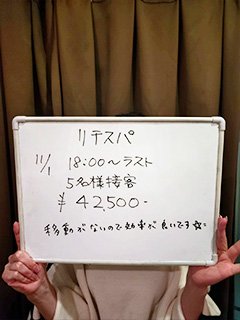 リテスパ
11/1 18:00〜ラスト
5名様接客
¥42,500-
移動がないので効率が良いです☆